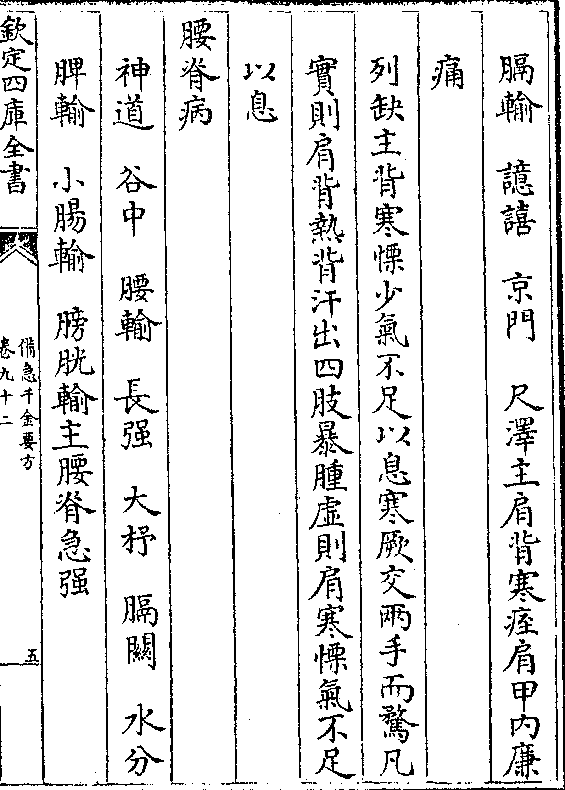 膈輸　譩譆　京門　尺澤主肩背寒痓肩甲内廉
痛
列缺主背寒慄少氣不足以息寒厥交兩手而瞀凡
實則肩背熱背汗出四肢暴腫虛則肩寒慄氣不足
以息
腰脊病
神道　谷中　腰輸　長强　大杼　膈關　水分
脾輸　小腸輸　膀胱輸主腰脊急强
欽定四庫全書
備急千金要方
卷九十二
五